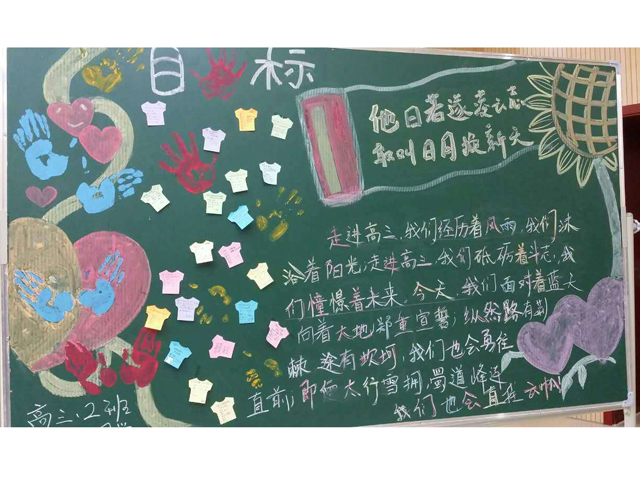 目标
他日若遂凌云志
敢叫日月换新天
走进高三,我们经历着风雨,我们沐
浴着阳光,走进高三,我们砥砺着斗志,我
们憧憬着未来。今天,我们面对着蓝天
向着大地,郑重宣誓:纵然路有荆
棘,途有坎坷,我们也会勇往
直前;即便太行雪拥,蜀道峰连
我们也会直挂云帆
高三、2班